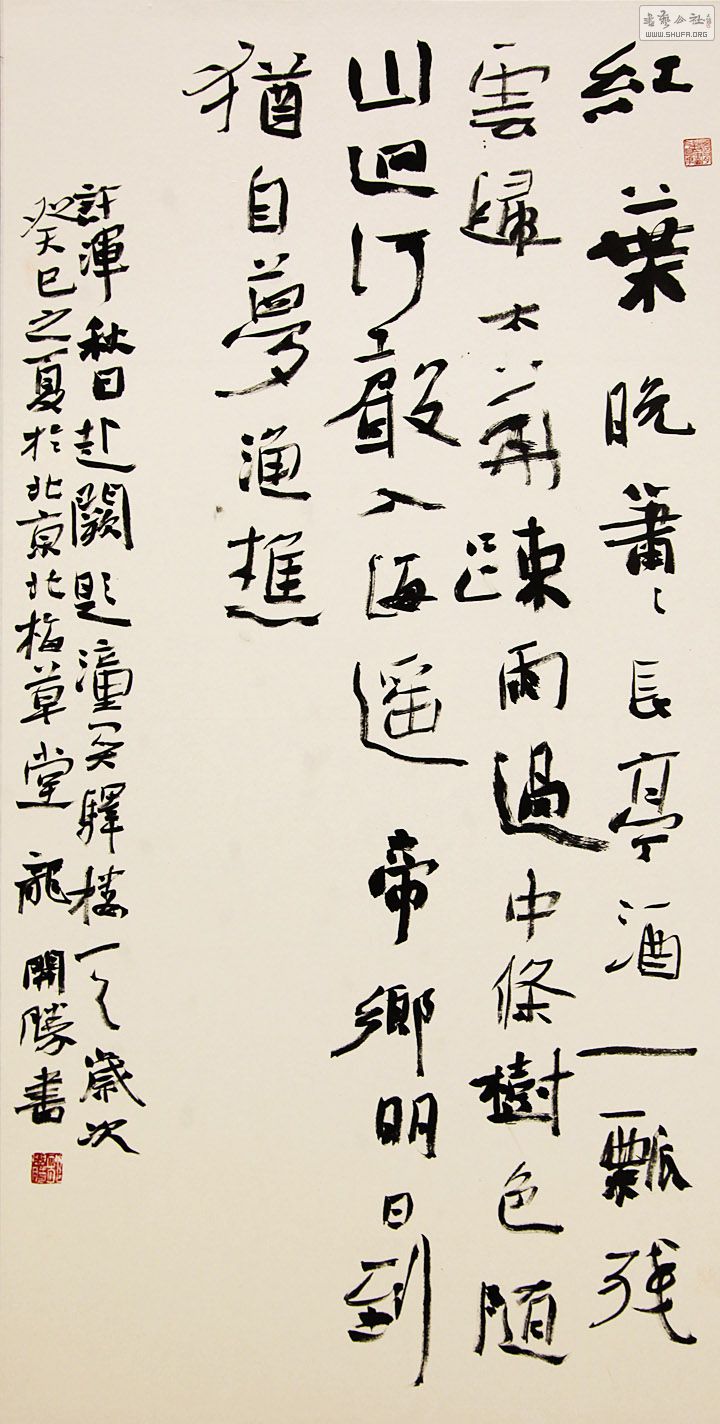 紅葉晩蕭〻長亭酒一瓢残
雲歸太華踈雨過中條樹色随
山迥河聲入海遥帝鄉明日到
猶自夢漁樵
許渾秋日赴闕題潼关驛楼一首歲次
癸巳之夏於北京北梅草堂龍開勝書
書藝公社
WWW.SHUFA.ORG